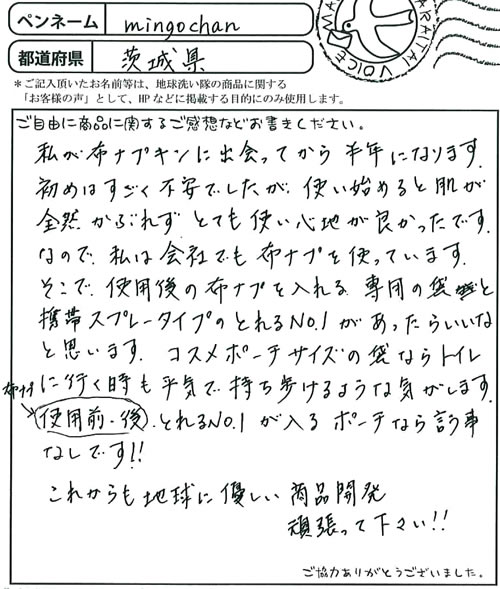 ペンネーム mingochan
都道府県 茨城県
＊ご記入頂いたお名前等は、地球洗い隊の商品に関する
「お客様の声」として、HPなどに掲載する目的にのみ使用します。
ご自由に商品に関するご感想などお書きください。
私が布ナプキンに出会ってから半年になります。
初めはすごく不安でしたが、使い始めると肌が
全然かぶれずとても使い心地が良かったです。
なので、私は会社でも布ナプを使っています。
そこで、使用後の布ナプを入れる専用の袋と
携帯スプレータイプのとれるNO.1があったらいいな
と思います。コスメポーチサイズの袋ならトイレ
に行く時も平気で持ち歩けるような気がします。
布ナプ
使用前・後、とれるNO.1が入るポーチなら言う事
なしです!!
これからも地球に優しい商品開発
頑張って下さい!!
ご協力ありがとうございました。
VOICE